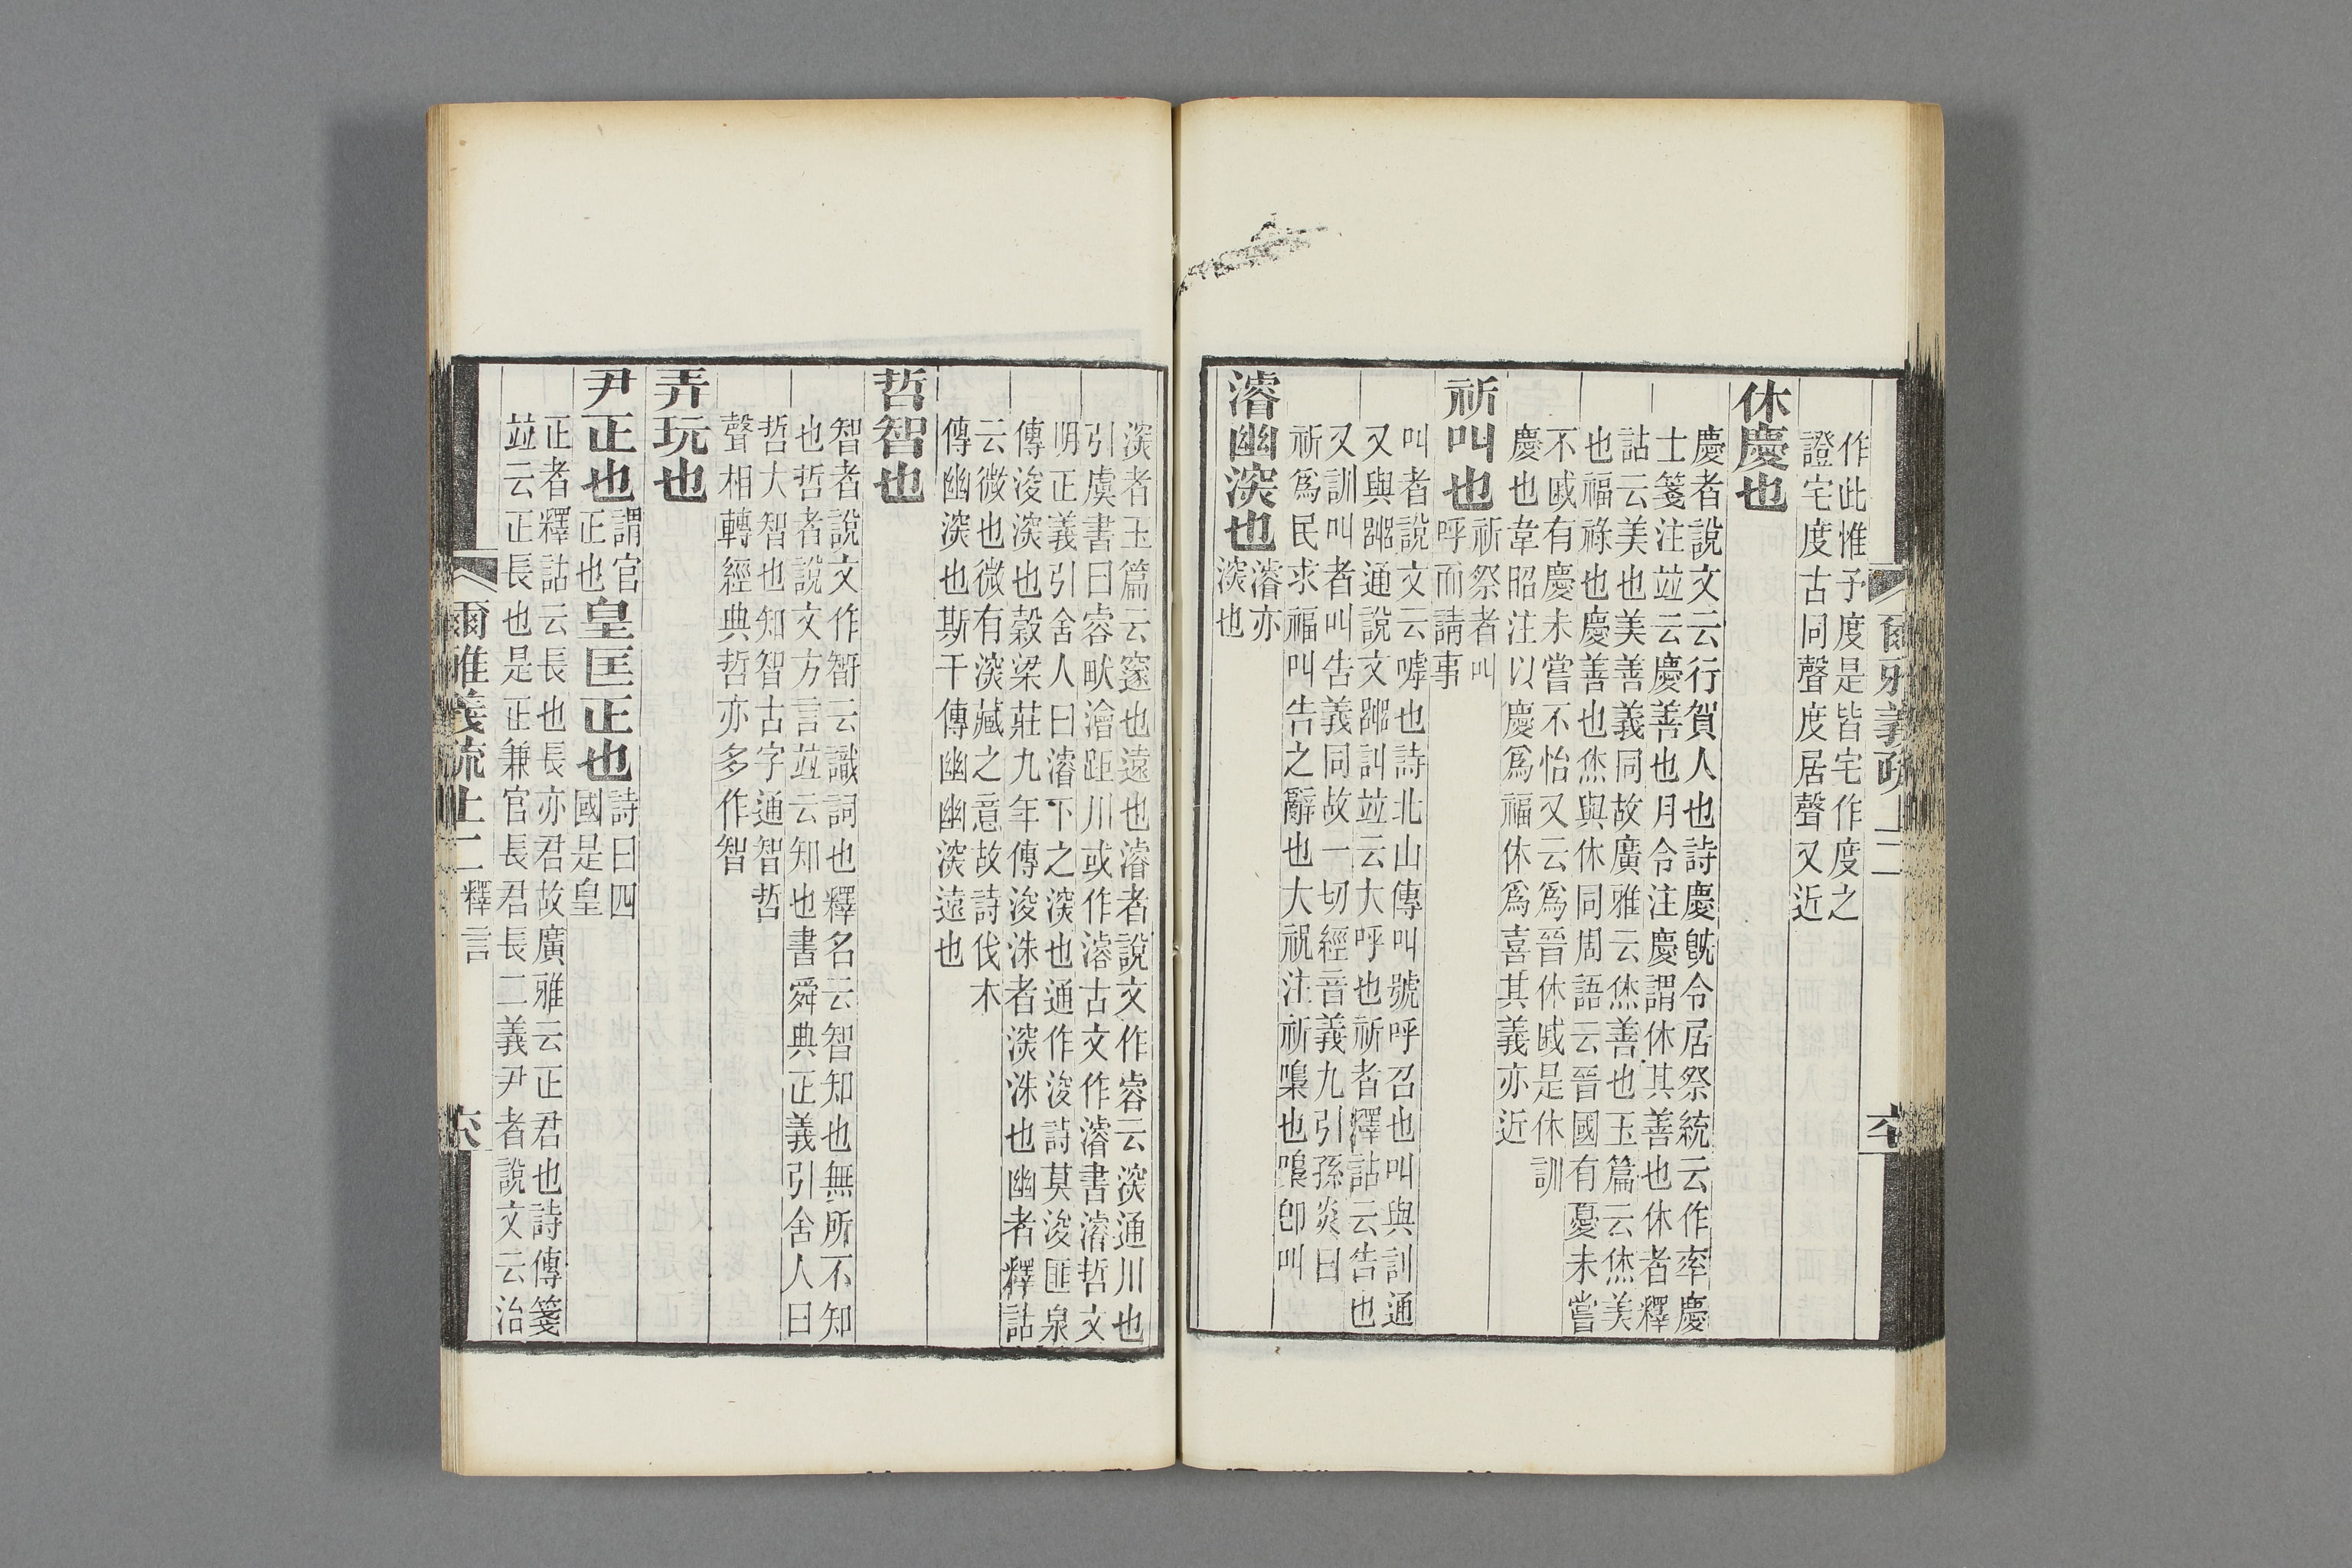 作此惟予度是皆宅作度之
證宅度古同聲度居聲又近
休慶也
慶者說文云行賀人也詩慶旣令居祭統云作率慶
士箋注竝云慶善也月令注慶謂休其善也休者釋
詁云美也美善義同故廣雅云烋善也玉篇云烋美
也福祿也慶善也烋與休同周語云晉國有憂未嘗
不戚有慶未嘗不怡又云爲晉休戚是休訓
慶也韋昭注以慶爲福休爲喜其義亦近
祈叫也
祈祭者叫
呼而請事
叫者說文云嘑也詩北山傳叫號呼召也叫與訓通
又與㗊通說文㗊訓竝云大呼也祈者釋詁云告也
又訓叫者叫告義同故一切經音義九引孫炎曰
祈爲民求福叫告之辭也大祝注祈嘄也嘄卽叫
濬幽深也
濬亦
深也
深者玉篇云邃也遠也濬者說文作睿云深通川也
引虞書曰睿畎澮距川或作濬古文作濬書濬哲文
明正義引舍人曰濬下之深也通作浚詩莫浚匪泉
傳浚深也穀梁莊九年傳浚洙者深洙也幽者釋詁
云微也微有深藏之意故詩伐木
傳幽深也斯干傳幽幽深遠也
哲智也
智者說文作𥏼云識詞也釋名云智知也無所不知
也哲者說文方言竝云知也書舜典正義引舍人曰
哲大智也知智古字通智哲
聲相轉經典哲亦多作智
弄玩也
尹正也
謂官
正也
皇匡正也
詩曰四
國是皇
正者釋詁云長也長亦君故廣雅云正君也詩傳箋
竝云正長也是正兼官長君長二義尹者說文云治
爾雅義疏上二 釋言